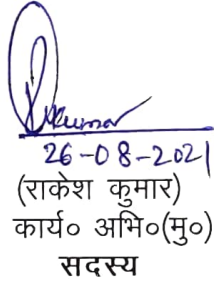 RKumar
26-08-2021
(राकेश कुमार)
कार्य० अभि०(मु०)
सदस्य